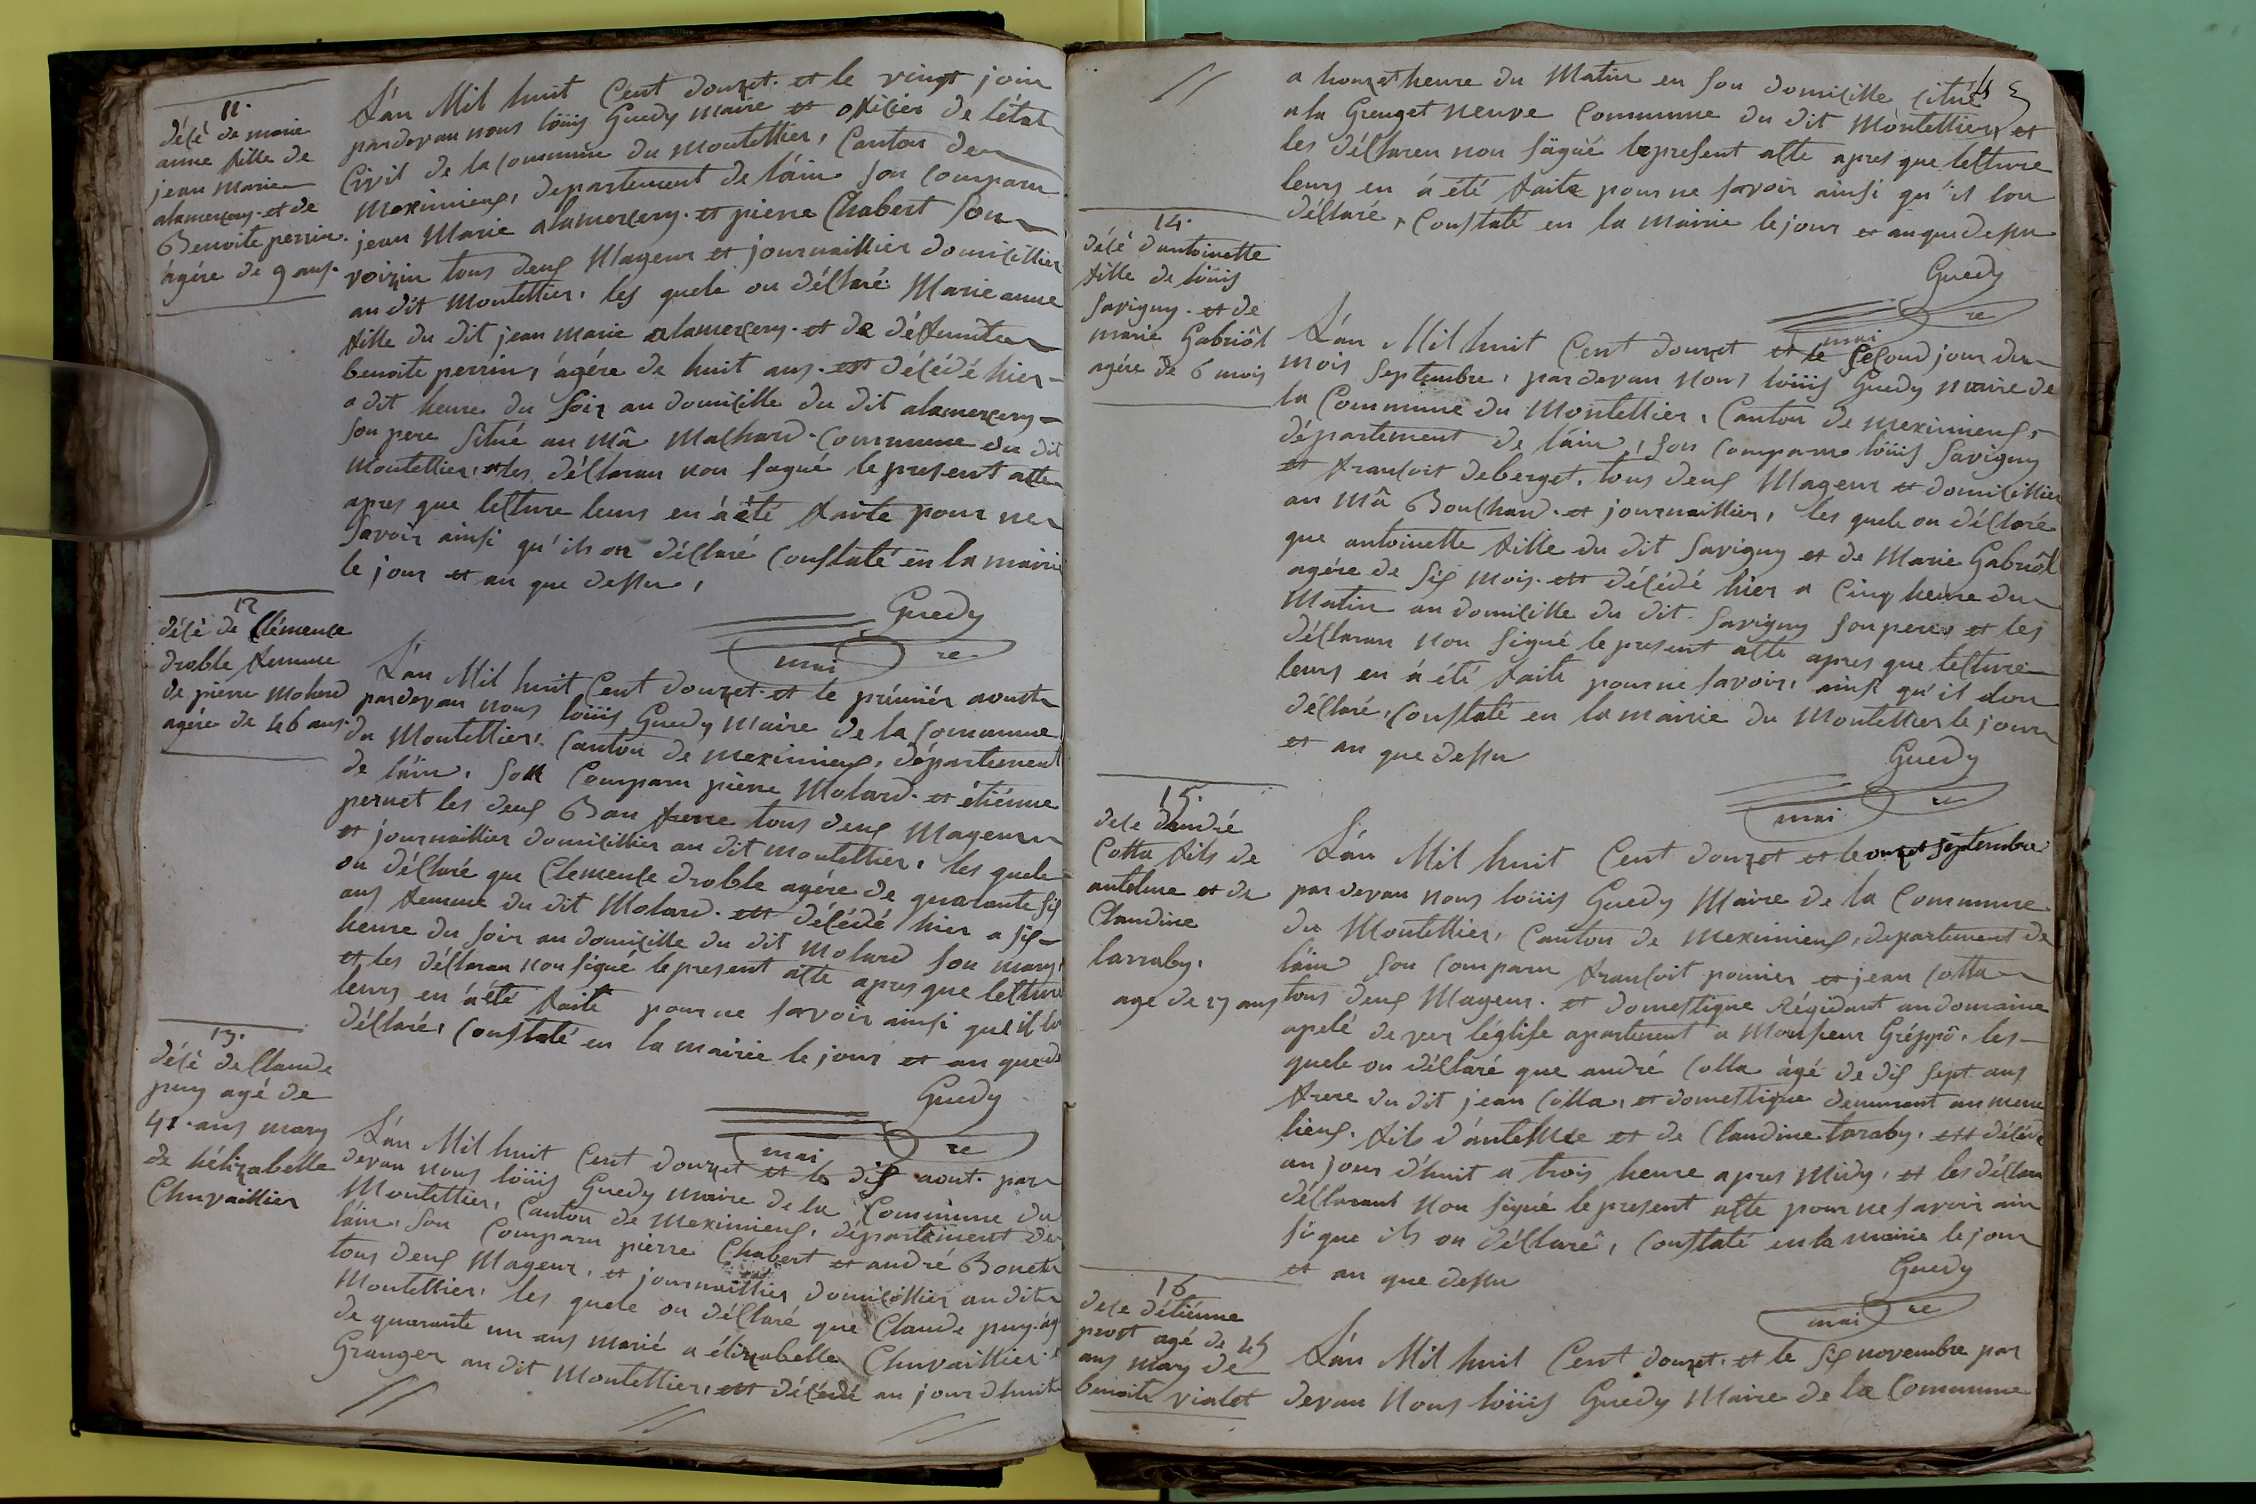 11.
décè de marie
anne fille de
jean marie
alamercery. et de
Benoite perrin.
agére de 9 ans.
L'an Mil huit Cent douzet. et le vingt juin
pardevan nous löüis Guedy maire et oficier de l'état
Civil de la commune du montellier, Canton de
meximieux, departement de l'áin son comparu
jean Marie alamercery. et pierre Chabert son
voizin tous deux Mageur et journaillier domicillier
au dit Montellier, les quele on déclaré Marie anne
fille du dit jean marie alamercery. et de défunte
benoite perrin, ágére de huit ans. est décédé hier
a dit heure du soir au domicille du dit alamercery
son pere situé au mâ Machard. Commune du dit
Montellier, et les déclaran non sagné le present atte
apres que letture leurs en á été faite pour ne
savoir ainsi qu'ils on déclaré Constaté en la mairie
le jour et an que dessu,
Guedy
mai re
12
décè de Clémence
droble femme
de pierre molard
agére de 46 ans.
L'an Mil huit Cent douzet. et le prémiér aoust
pardevan nous löüis Guedy maire de la Commune
du Montellier, Canton de meximieux, département
de l'áin, son Comparu piérre Molard. et étiénne
pernet les deux Bau frere tous deux Mageur
et journaillier domicillier au dit montellier, les quele
on déclaré que Clemence droble agére de quarante six
ans femme du dit Molard. est décédé hier a six
heure du soir au domicille du dit molard son mary,
et les déclaran non signé le present atte apres que letture
leurs en á été faite pour ne savoir ainsi qu'il lon
déclaré, Constaté en la mairie le jour et an que de
Guedy
mai re
13.
décè de Claude
puy agé de
41. ans mary
de hélizabelle
Chuvaillier
L'an Mil huit Cent douzet et le dix aout. par
devan nous löüis Guedy maire de la Commune du
Montellier, Canton de Meximieux, département de
l'áin, son Comparu piérre Chabert et andré Bonet
tous deux Mageur, et journaillier domicillier au dit
Montellier, les quele on déclaré que Claude puy. ág
de quarante un ans marié a élizabelle Chuvaillier.
Granger au dit Montellier, est décédé au jour dhuit
a honzet heure du Matin en son domicille citué
a la Grenget neuve Commune du dit Montellier, et
les déclaren non sägüé le present atte apres que letture
leurs en á été faite pour ne savoir ainsi qu'il lon
déclaré, Constaté en la mairie le jour et an que dessu
Guedy
mai re
14.
décè dantoinette
fille de löüis
Savigny. et de
marie Gabriôl
agére de 6 mois
L'an Mil huit Cent douzet et le second jour du
mois Septembre, pardevan nous löüis Guedy maire de
la Commune du Montellier, Canton de meximieux,
département de l'áin, son comparu löüis Savigny
et fransoit deberget, tous deux Mageur et domicillier
au mâ Bouchard. et journaillier, les quele on déclaré
que antoinette fille du dit Savigny et de Marie Gabriôl
agére de six mois. est décédé hier a cinq heure du
Matin au domicille du dit. Savigny son pere, et les
déclaran non signé le present atte apres que letture
leurs en á été faite pour ne savoir, ainsi qu'il lon
déclaré, Constaté en la mairie du Montellier le jour
et an que dessu
Guedy
mai re
15.
dece dandré
Cotta fils de
antelme et de
Claudine
larraby.
age de 17 ans
L'án Mil huit Cent douzet et le onzet septembre
par devan nous löüis Guedy Maire de la Commune
du Montellier, Canton de Meximieux, departement de
l'áin son comparu fransoit pomier et jean Cotta
tous deux Mageur. et domestique Régidant au domaine
apelé de ver léglise apartenent a Monsieur Gréppô, les
quele on déclaré que andré Cotta ágé de dix sept ans
frere du dit jean Cotta, et domestique demurent au meme
lieux. fils d'antelme et de Claudine laraby, est décédé
au jour d'huit a trois heure apres Midy, et les déclan
déclarant non signé le present atte pour ne savoir ain
si que ils on déclaré, Constaté en la mairie le jour
et an que dessu
Guedy
mai re
16
dece détiénne
prost agé de 45
ans mary de
benoite vialet
L'án Mil huit Cent douzet. et le six novembre par
devan Nous löüis Guedy Maire de la Commune